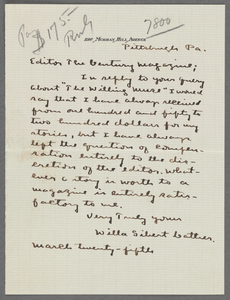 Pay
$175
7800
1180, Murray Hill Avenue
Pittsburgh Pa.
Editor The Century Magazine;
In reply to your query
about "The Willing Muse" I would
say that I have always received
from one hundred and fifty to
two hundred dollars for my
stories, but I have always
left the question of compen-
sation entirely to the dis-
cretion of the editor. What-
ever a story is worth to a
magazine is entirely satis-
factory to me.
Very Truly yours
Willa Sibert Cather.
March twenty-fifth